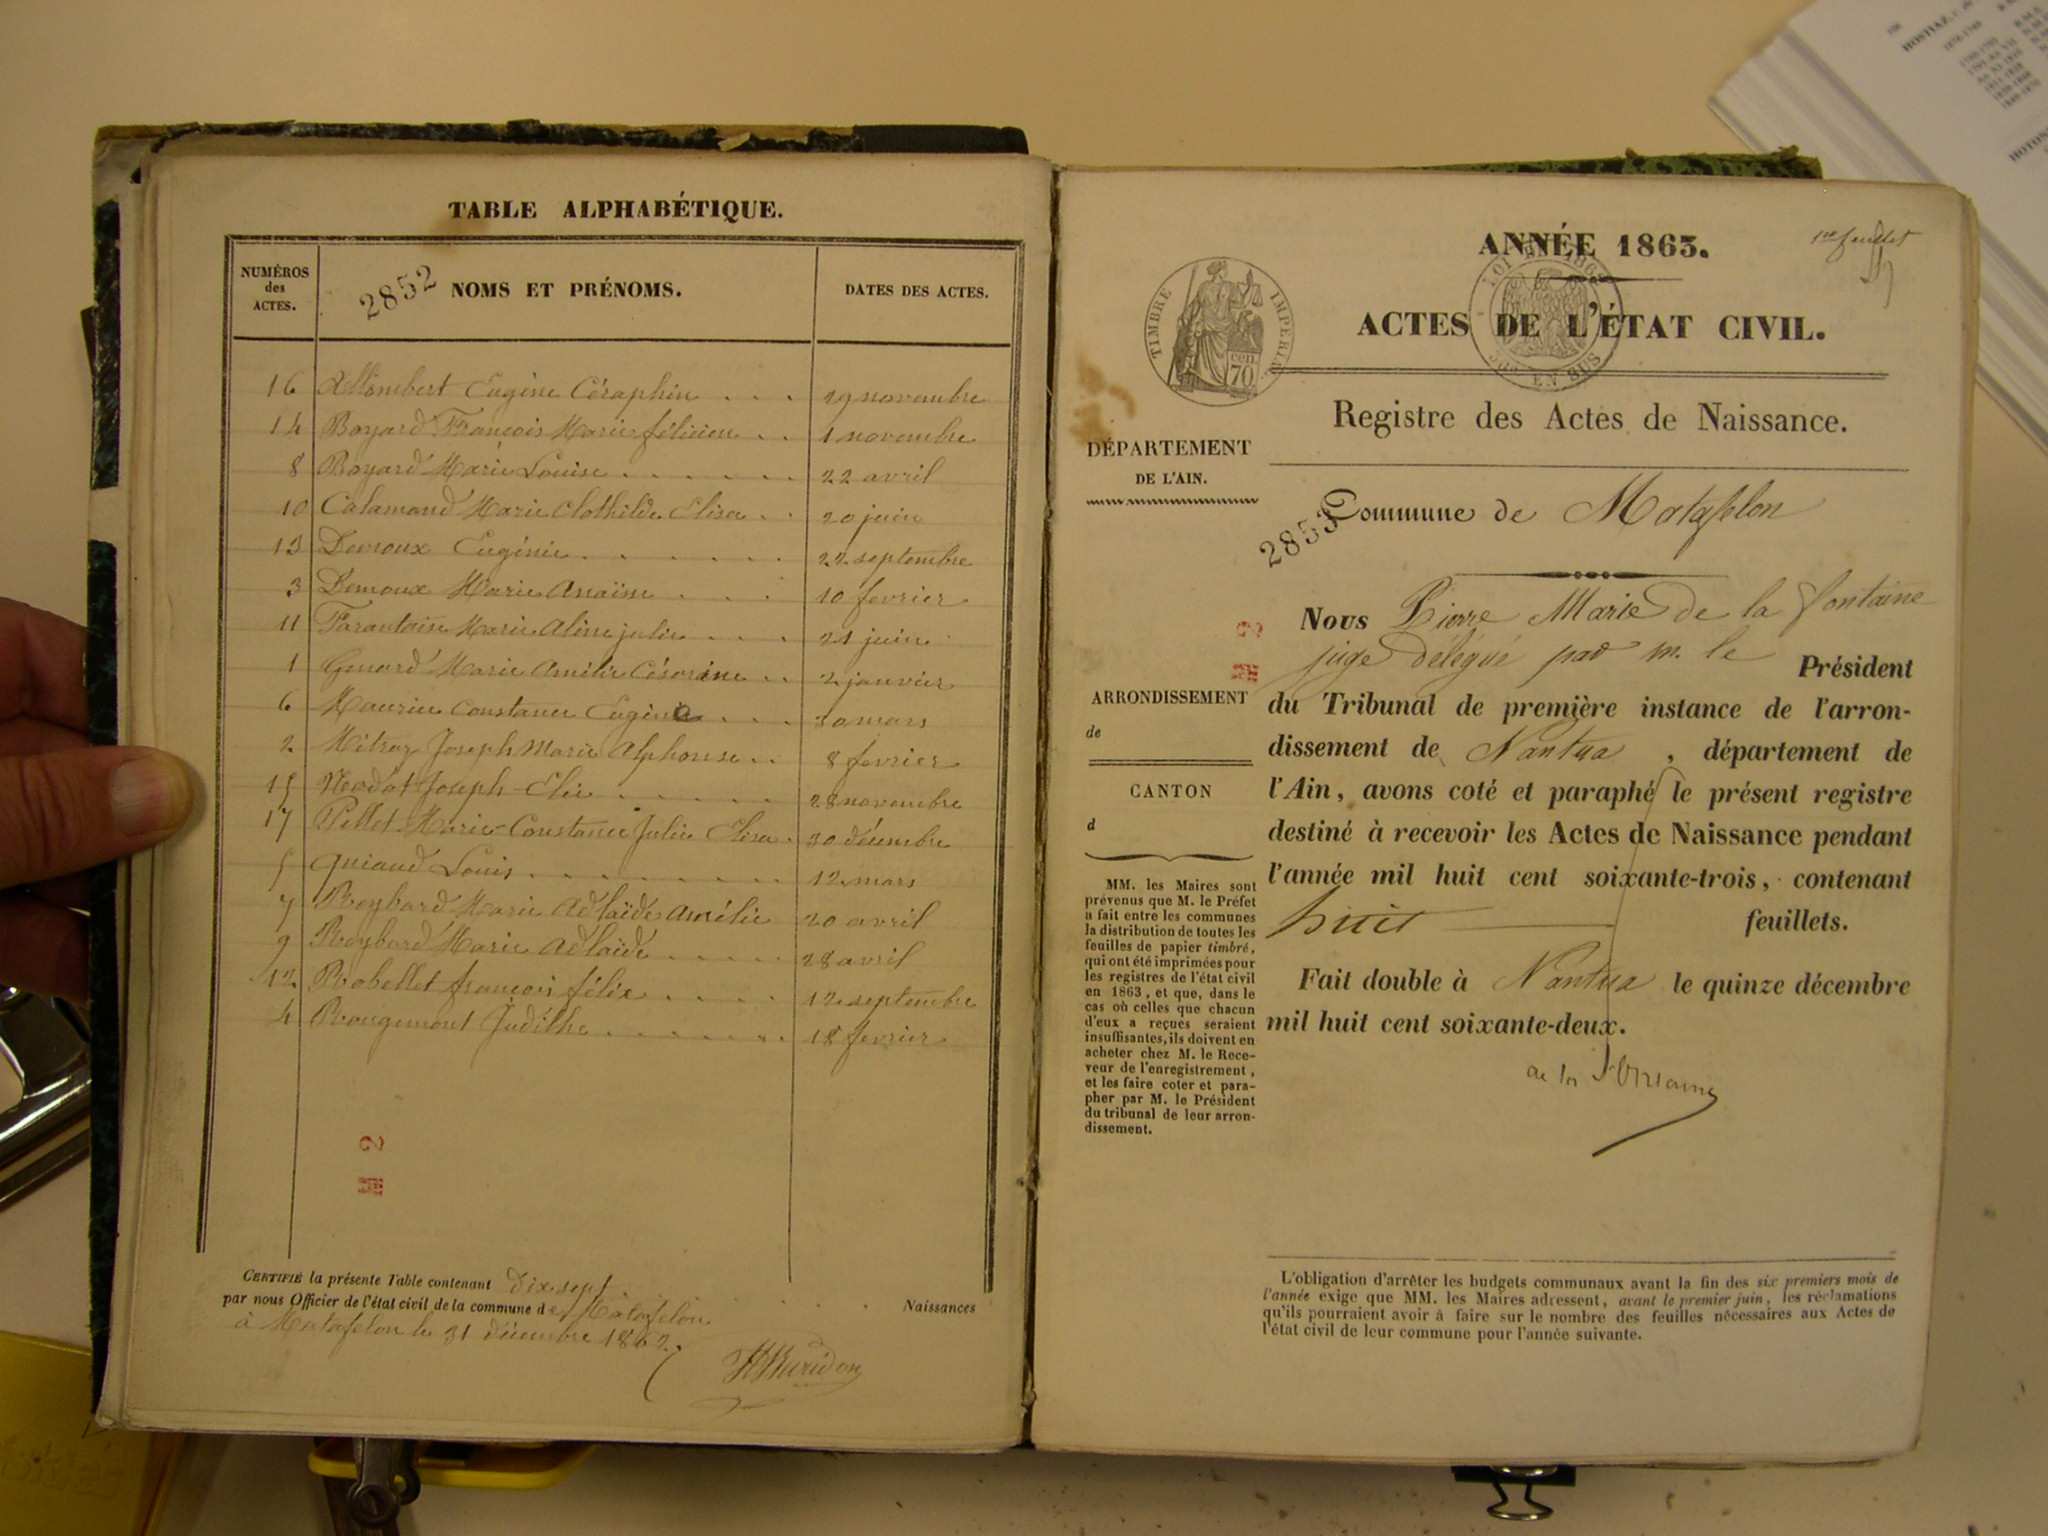 TABLE ALPHABÉTIQUE.
NUMÉROS des ACTES.
2852 NOMS ET PRÉNOMS.
DATES DES ACTES.
16 Allombert Eugène Céraphin . . . 19 novembre
14 Boyard François Marie félicien . . 1 novembre
8 Boyard Marie Louise . . . . . . 22 avril
10 Calamand Marie Clothilde Elisa . . 20 juin
13 Devroux Eugénie . . . . . . 22 septembre
3 Marie Anaïse . . . . 10 fevrier
11 Marie Aline julie . . . 21 juin
1 Genard Marie Amélie Césarine . . 2 janvier
6 Maurice Constance Eugène . . . 30 mars
2 Mitroz Joseph Marie Alphonse . . 8 fevrier
15 Nodat Joseph-Elie . . . . . . 28 novembre
17 Pellet Marie-Constance Julie Elisa . 30 décembre
5 Quiaud Louis . . . . . . . . . 12 mars
7 Reybard Marie Adlaïde Amélie 20 avril
9 Reybard Marie Adlaïde . . . . . 28 avril
12 Robellet françois félix . . . . 12 septembre
4 Rougemont Judithe . . . . . . . 18 fevrier
H 2
CERTIFIÉ la présente Table contenant dix sept Naissances
par nous Officier de l'état civil de la commune de Matafelon
à Matafelon le 31 décembre 1862.
1er feuillet
ANNÉE 1863.
TIMBRE IMPÉRIAL
70 cen.
EN SUS
ACTES DE L'ÉTAT CIVIL.
Registre des Actes de Naissance.
DÉPARTEMENT
DE L'AIN.
2853
Commune de Matafelon
H 2
ARRONDISSEMENT
de
CANTON
d
MM. les Maires sont
prévenus que M. le Préfet
a fait entre les communes
la distribution de toutes les
feuilles de papier timbré,
qui ont été imprimées pour
les registres de l'état civil
en 1863, et que, dans le
cas où celles que chacun
d'eux a reçues seraient
insuffisantes, ils doivent en
acheter chez M. le Rece-
veur de l'enregistrement,
et les faire coter et para-
pher par M. le Président
du tribunal de leur arron-
dissement.
Nous Pierre Marie de la fontaine
juge délégué par m. le Président
du Tribunal de première instance de l'arron-
dissement de Nantua, département de
l'Ain, avons coté et paraphé le présent registre
destiné à recevoir les Actes de Naissance pendant
l'année mil huit cent soixante-trois, contenant
huit feuillets.
Fait double à Nantua le quinze décembre
mil huit cent soixante-deux.
de la Fontaine
L'obligation d'arrêter les budgets communaux avant la fin des six premiers mois de
l'année exige que MM. les Maires adressent, avant le premier juin, les réclamations
qu'ils pourraient avoir à faire sur le nombre des feuilles nécessaires aux Actes de
l'état civil de leur commune pour l'année suivante.